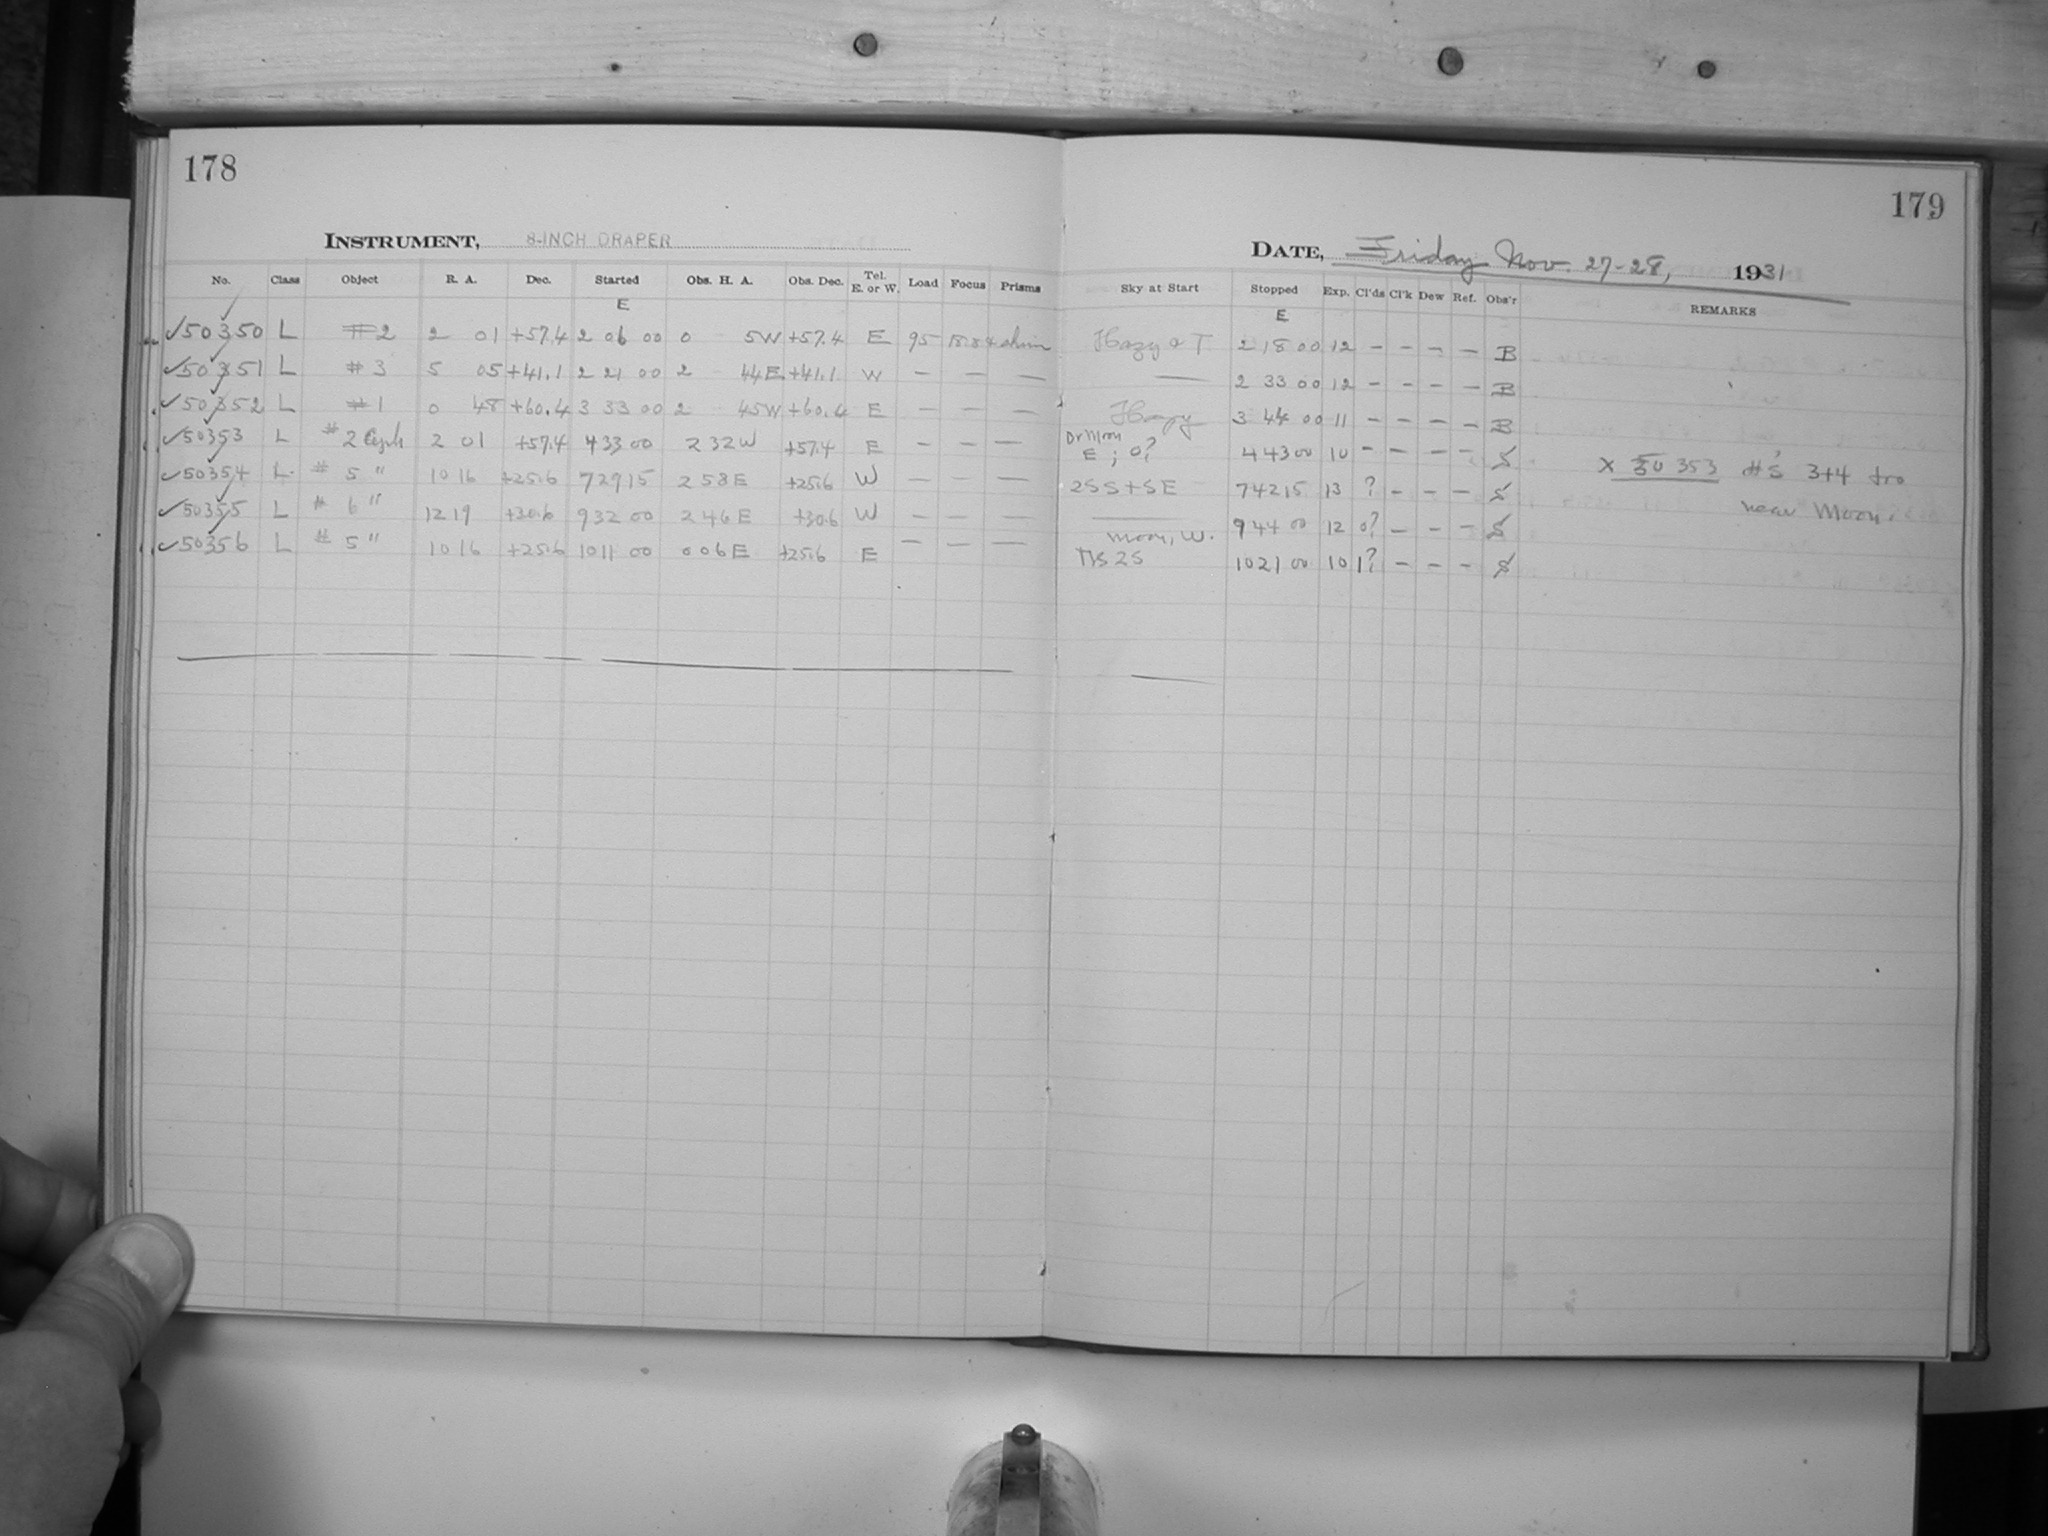 178
INSTRUMENT, 8-INCH DRAPER
No. Class Object R. A. Dec. Started Obs. H. A. Obs. Dec. Tel. E. or W. Load Focus Prisms
E
✓50350 L #2 2 01 +57.4 2 06 00 0 5W +57.4 E 95
✓50351 L #3 5 05 +41.1 2 21 00 2 44E +41.1 W — — —
✓50352 L #1 0 48 +60.4 3 33 00 2 45W +60.4 E — — —
✓50353 L #2 2 01 +57.4 4 33 00 2 32W +57.4 E — — —
✓50354 L #5 " 10 16 +25.6 7 29 15 2 58E +25.6 W — — —
✓50355 L #6 " 12 19 +30.6 9 32 00 2 46E +30.6 W — — —
✓50356 L #5 " 10 16 +25.6 10 11 00 0 06E +25.6 E — — —
179
DATE, Friday Nov. 27-28, 1931
Sky at Start Stopped Exp. Cl'ds Cl'k Dew Ref. Obs'r REMARKS
E
Hazy & T 2 18 00 12 — — — — B
— 2 33 00 12 — — — — B
Hazy 3 44 00 11 — — — — B
Moon
E; 0? 4 43 00 10 — — — — S
X 50353 #s 3+4 too
2SS+SE 7 42 15 13 ? — — — S
near Moon.
— 9 44 00 12 0? — — — S
Moon, W.
2S 10 21 00 10 1? — — — S